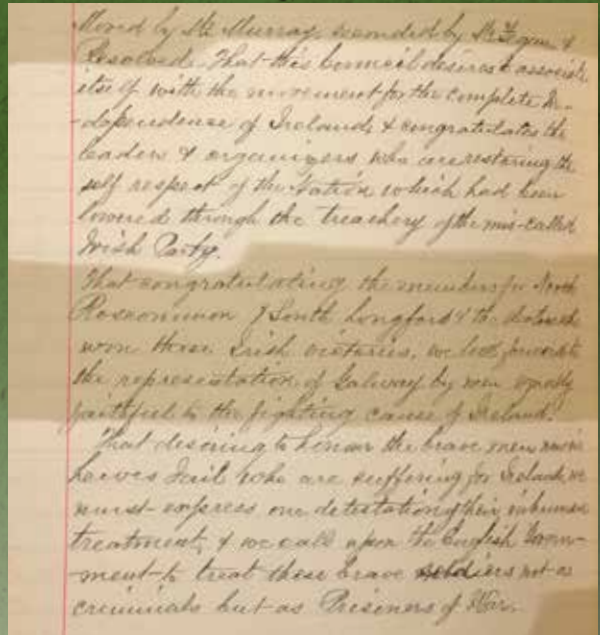 Moved by Mr Murray, seconded by Mr &
Resolved. That this Council desires to associate
itself with the movement for the complete In-
-dependense of Ireland, & congratulates the
leaders & organizers who are restoring the
self respect of the Nation which had been
lowered through the treachery of the mis-called
Irish Party.
That congratulating the members for North
Roscommon & South Longford & the who
won those Irish victories, we look forward to
the representation of Galway by men equally
faithful to the fighting cause of Ireland.
That desiring to honour the brave men now in
Lewes Jail who are suffering for Ireland, we
must express our detestation of their inhuman
treatment, & we call upon the English Govern-
-ment to treat these brave soldiers not as
criminals but as Prisoners of War.